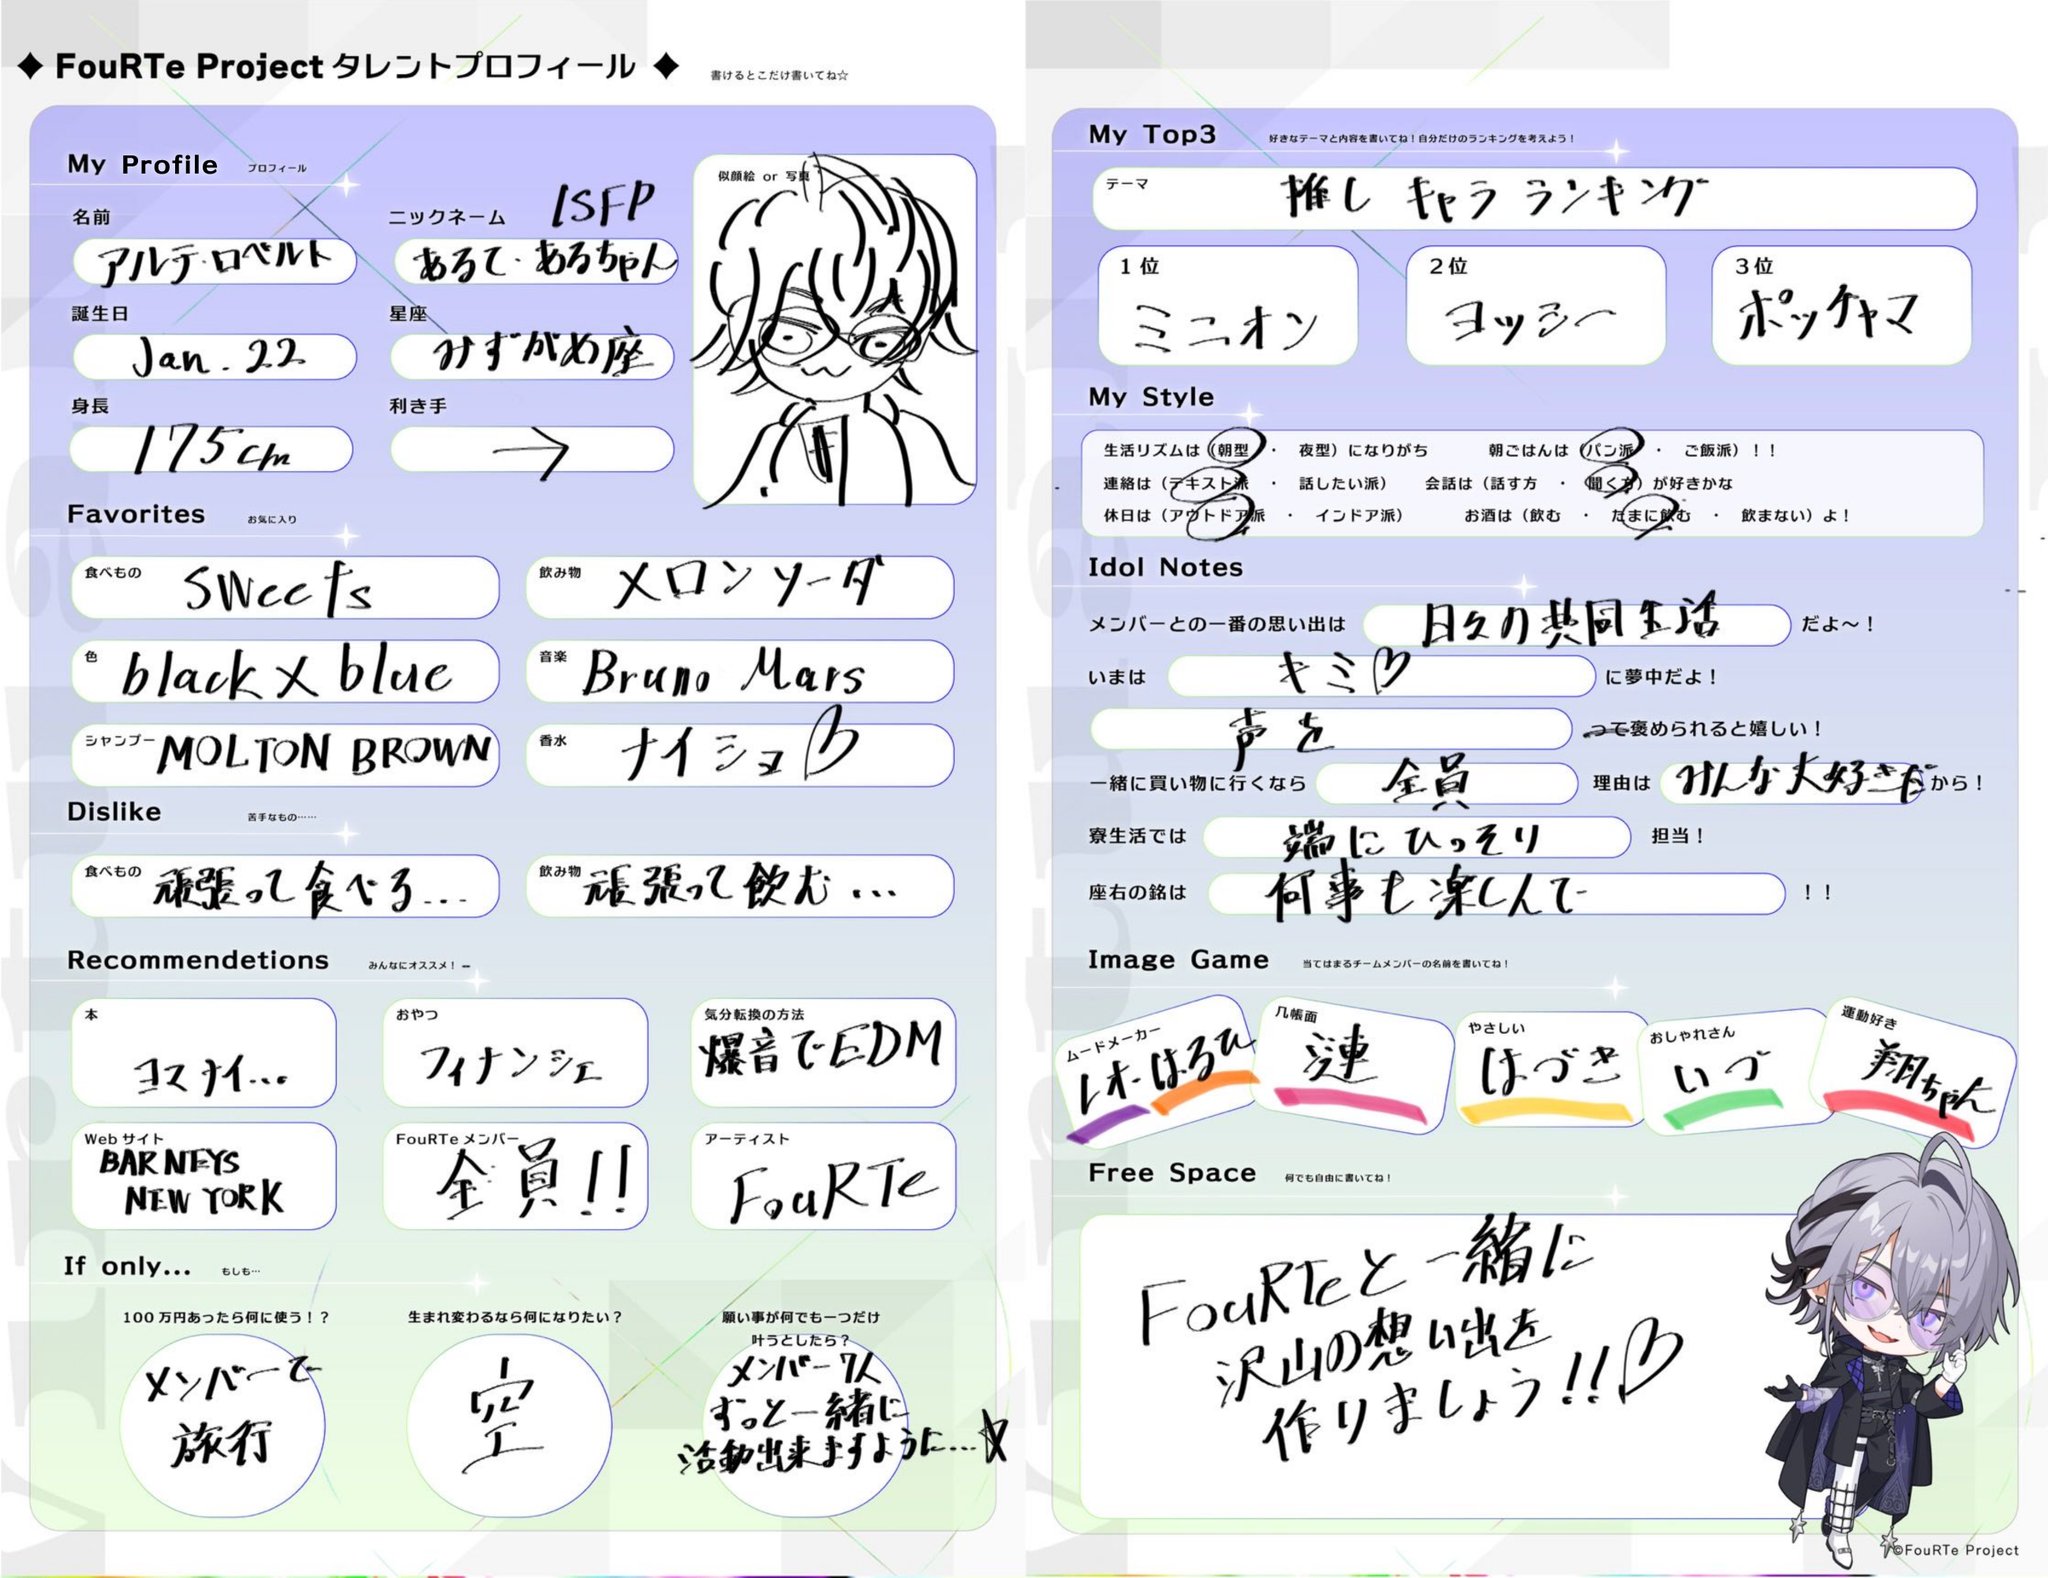 ◆ FouRTe Project タレントプロフィール ◆ 書けるとこだけ書いてね☆
My Profile プロフィール
名前
アルテ・ロベルト
ニックネーム ISFP
あるて・あるちゃん
誕生日
Jan. 22
星座
みずがめ座
身長
175cm
利き手
→
似顔絵 or 写真
Favorites お気に入り
食べもの sweets
飲み物 メロンソーダ
色 black × blue
音楽 Bruno Mars
シャンプー MOLTON BROWN
香水 ナイショ♡
Dislike 苦手なもの……
食べもの 頑張って食べる...
飲み物 頑張って飲む...
Recommendetions みんなにオススメ！
本
ヨマナイ...
おやつ
フィナンシェ
気分転換の方法
爆音でEDM
Webサイト
BARNEYS
NEW YORK
FouRTeメンバー
全員!!
アーティスト
FouRTe
If only... もしも…
100万円あったら何に使う！？
メンバーで
旅行
生まれ変わるなら何になりたい？
空
願い事が何でも一つだけ
叶うとしたら？
メンバー7人
ずっと一緒に
活動出来ますように...☆
My Top3 好きなテーマと内容を書いてね！自分だけのランキングを考えよう！
テーマ 推しキャラランキング
1位
ミニオン
2位
ヨッシー
3位
ポッチャマ
My Style
生活リズムは（朝型 ・ 夜型）になりがち 朝ごはんは（パン派 ・ ご飯派）！！
連絡は（テキスト派 ・ 話したい派） 会話は（話す方 ・ 聞く方）が好きかな
休日は（アウトドア派 ・ インドア派） お酒は（飲む ・ たまに飲む ・ 飲まない）よ！
Idol Notes
メンバーとの一番の思い出は 日々の共同生活 だよ〜！
いまは キミ♡ に夢中だよ！
声を って褒められると嬉しい！
一緒に買い物に行くなら 全員 理由は みんな大好きだ から！
寮生活では 端にひっそり 担当！
座右の銘は 何事も楽しんで ！！
Image Game 当てはまるチームメンバーの名前を書いてね！
ムードメーカー
レオ・はるひ
几帳面
漣
やさしい
はづき
おしゃれさん
いづ
運動好き
翔ちゃん
Free Space 何でも自由に書いてね！
FouRTeと一緒に
沢山の想い出を
作りましょう!!♡
©FouRTe Project